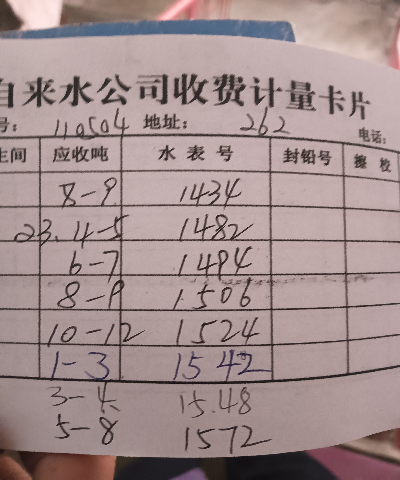 自来水公司收费计量卡片
号: 110504 地址: 262 电话:
生间 应收吨 水表号 封铅号
8-9 1434
23.4-5 1482
6-7 1494
8-9 1506
10-12 1524
1-3 1542
3-4 15.48
5-8 1572